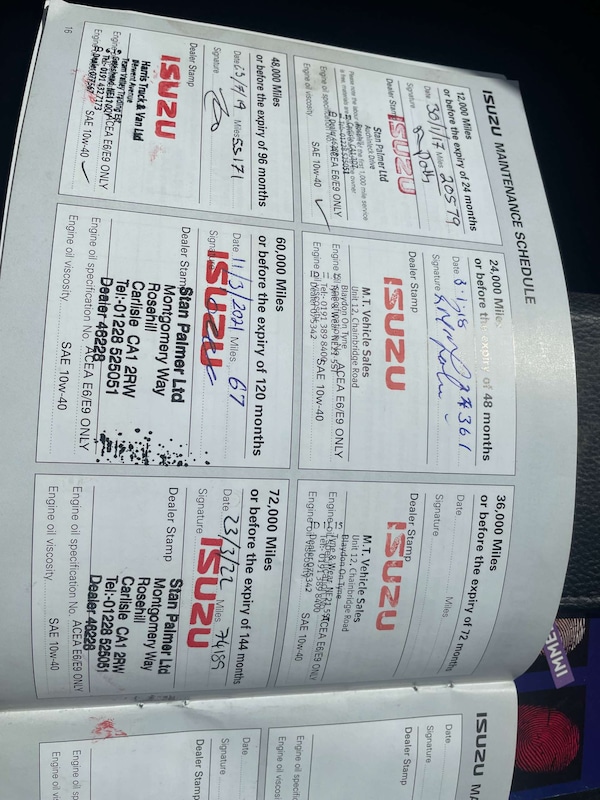 ISUZU MAINTENANCE SCHEDULE
12,000 Miles
or before the expiry of 24 months
Date 30/1/17 Miles 20579
Signature
Dealer Stamp
ISUZU
Stan Palmer Ltd
Auchinleck Drive
Engine oil viscosity SAE 10w-40
24,000 Miles
or before the expiry of 48 months
Date
Signature
Dealer Stamp
ISUZU
M.T. Vehicle Sales
Unit 12, Chainbridge Road
Blaydon On Tyne
Tyne & Wear NE21 5ST
Tel: 0191 389 8400
ACEA E6/E9 ONLY
SAE 10w-40
36,000 Miles
or before the expiry of 72 months
Date Miles
Signature
Dealer Stamp
ISUZU
M.T. Vehicle Sales
Unit 12, Chainbridge Road
Blaydon On Tyne
Tyne & Wear NE21 5ST
Tel: 0191 389 8400
ACEA E6/E9 ONLY
SAE 10w-40
48,000 Miles
or before the expiry of 96 months
Date 23/7/19 Miles 55171
Signature
Dealer Stamp
ISUZU
Harris Truck & Van Ltd
ACEA E6/E9 ONLY
SAE 10w-40
16
60,000 Miles
or before the expiry of 120 months
Date 11/3/2021 Miles 67
Signature
ISUZU
Dealer Stamp
Stan Palmer Ltd
Montgomery Way
Rosehill
Carlisle CA1 2RW
Tel:-01228 525051
Dealer 48228
Engine oil specification No. ACEA E6/E9 ONLY
Engine oil viscosity SAE 10w-40
72,000 Miles
or before the expiry of 144 months
Date 23/3/22 Miles 74189
Signature
ISUZU
Dealer Stamp
Stan Palmer Ltd
Montgomery Way
Rosehill
Carlisle CA1 2RW
Tel:-01228 525051
Dealer 48228
Engine oil specification No. ACEA E6/E9 ONLY
Engine oil viscosity SAE 10w-40
ISUZU MA
Date
Signature
Dealer Stamp
Engine oil specif
Engine oil visc
Date
Signature
Dealer Stamp
Engine oil spec
Engine oil vis
IMME